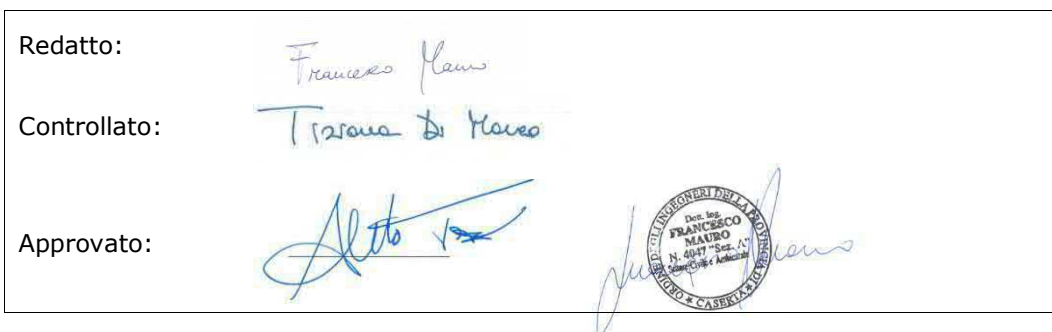 Redatto:
Francesco Mauro
Controllato:
Tiziana Di Marco
Approvato:
ORDINE DEGLI INGEGNERI DELLA PROVINCIA DI
CASERTA
Dott. Ing.
FRANCESCO
MAURO
N. 4047 "Sez. A"